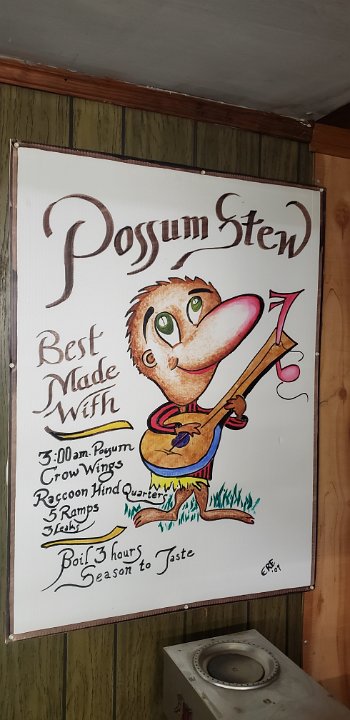 Possum Stew
Best
Made
With
3:00 am. Possum
Crow Wings
Raccoon Hind Quarters
5 Ramps
3 Leaks
Boil 3 hours
Season to Taste